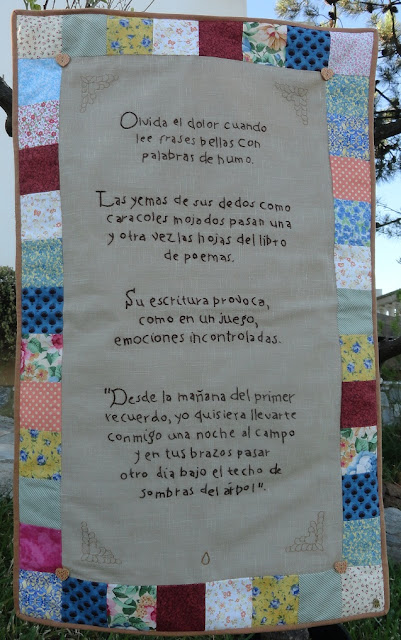 Olvida el dolor cuando
lee frases bellas con
palabras de humo.
Las yemas de sus dedos como
caracoles mojados pasan una
y otra vez las hojas del libro
de poemas.
Su escritura provoca,
como en un juego,
emociones incontroladas.
"Desde la mañana del primer
recuerdo, yo quisiera llevarte
conmigo una noche al campo
y en tus brazos pasar
otro día bajo el techo de
sombras del árbol".